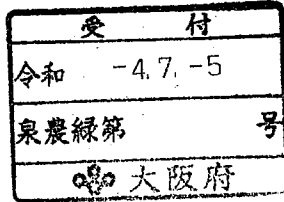 受付
令和 -4.7.-5
泉農緑第 号
大阪府